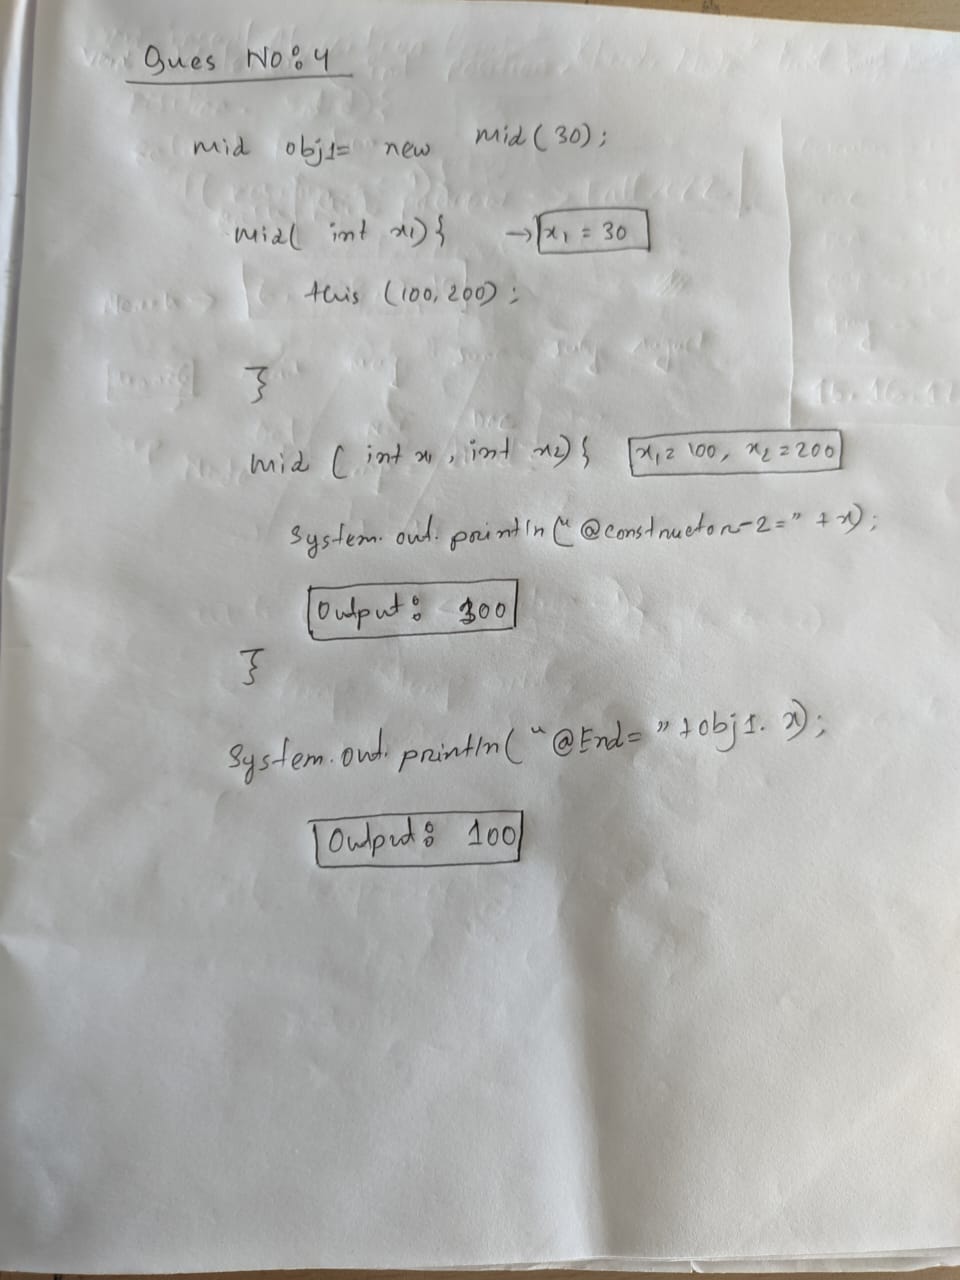 Ques No: 4
mid obj1= new mid(30);
mid( int x1){ → x1 = 30
this (100, 200);
}
mid ( int x1, int x2){ x1= 100, x2=200
System.out.println("@constructor-2=" + x);
Output: 300
}
System.out.println("@End= "+obj1. x);
Output: 100